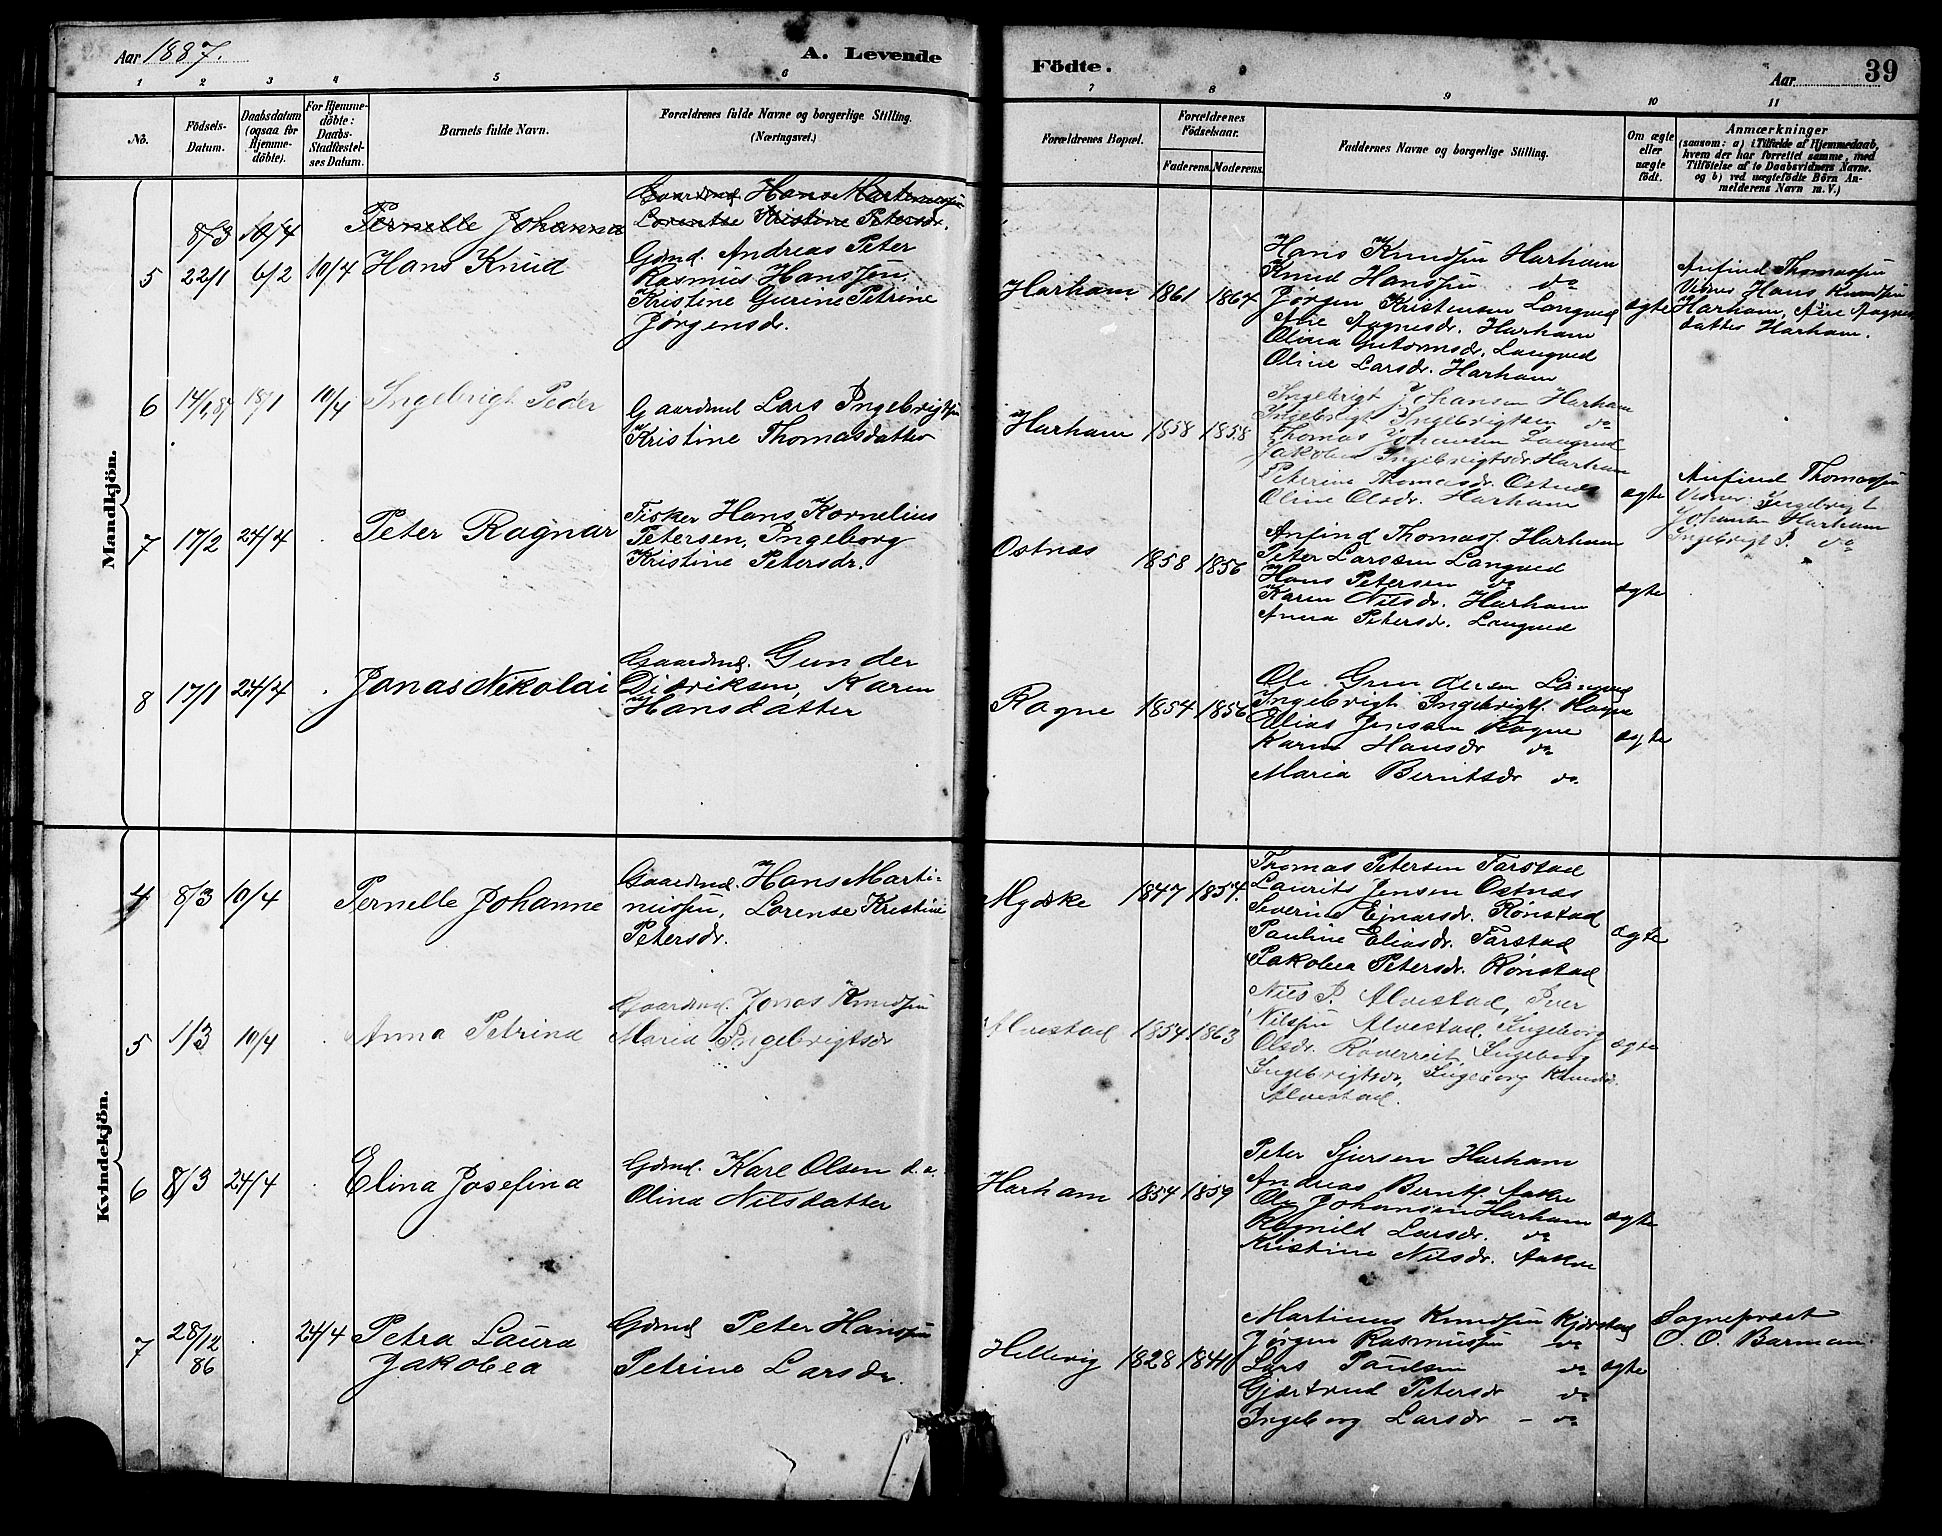 Aar 1887.
A. Levende
Födte.
Aar
39
1 2 3 4 5 6 7 8 9 10 11
No.
Födsels-
Datum.
Daabsdatum
(ogsaa for
Hjemme-
döbte).
For Hjemme-
döbte:
Daabs-
Stadfæstel-
ses Datum.
Barnets fulde Navn.
Forældrenes fulde Navne og borgerlige Stilling.
(Næringsvei.)
Forældrenes Bopæl.
Forældrenes
Födselsaar.
Faderens. Moderens.
Faddernes Navne og borgerlige Stilling.
Om ægte
eller
uægte
födt.
Anmærkninger
(saasom: a) i Tilfælde af Hjemmedaab,
hvem der har forrettet samme, med
Tilföielse af to Daabsvidners Navne.
og b) ved uægtefödte Börn An-
melderens Navn m. V.)
Mandkjön.
8/3 10/4 Pernelle Johanna
Gaardmd Hans Martinussen
Lorentse Kristine Petersdr.
5 22/1 6/2 10/4 Hans Knud
Gdmd. Andreas Peter
Rasmus Hanssen
Kristine Gurine Petrine
Jørgensdr.
Harham 1861 1864
Hans Knudsen Harham
Knud Hanssen do
Jørgen Kristensen Langved
Ane Aagnesdr. Harham
Olina Gutormsdr. Langved
Oline Larsdr. Harham
ægte
Anfind Thomassen
Vidner Hans Knudsen
Harham, Ane Aagnes
datter Harham.
6 14/1 87 18/1 10/4 Ingebrigt Peder
Gaardmd Lars Ingebrigtsen
Kristine Thomasdatter
Harham 1858 1858
Ingebrigt Johansen Harham
Ingebrigt Ingebrigtsen do
Thomas Johansen Langved
Jakobea Ingebrigtsdr Harham
Peterine Thomasdr. Ostnæs
Oline Olsdr. Harham
ægte
Anfind Thomassen
Vidner Ingebrigt
Johansen Harham
Ingebrigt I. do
7 17/2 24/4 Peter Ragnar
Fisker Hans Kornelius
Petersen, Ingeborg
Kristine Petersdr.
Ostnæs 1858 1856
Anfind Thomass. Harham
Peter Larssen Langved
Hans Petersen do
Karen Nilsdr. Harham
Anna Petersdr. Langved
ægte
8 17/1 24/4 Jonas Nikolai
Gaardmd. Gunder
Didriksen, Karen
Hansdatter
Rogne 1854 1856
Ole Gundersen
Ingebrigt Ingebrigts. Rogne
Elias Jensen Rogne
Karen Hansdr do
Maria Berntsdr do.
ægte
Kvindekjön.
4 8/3 10/4 Pernelle Johanne
Gaardmd. Hans Marti-
nussen, Lorense Kristine
Petersdr.
Myske 1847 1857.
Thomas Petersen Farstad
Laurits Jensen Ostnæs
Severine Ejnarsdr. Rønstad
Pauline Eliasdr. Farstad
Jakobea Petersdr. Rønstad
ægte
5 1/3 10/4 Anna Petrina
Gaardmd. Jonas Knudsen
Maria Ingebrigtsdr
Alvestad 1854 1863
Nils P. Alvestad, Iver
Nilssen Alvestad, Ingeborg
Olsdr. Ingeborg
Ingebrigtsdr, Ingeborg Knudsdr.
Alvestad.
ægte
6 8/3 24/4 Elina Josefina
Gdmd. Karl Olsen
Olina Nilsdatter
Harham 1854 1859
Peter Sjursen Harham
Andreas Bernts. Aakre
Ole Johansen Harham
Ragnild Larsdr. do
Kristine Nilsdr. Aakre
ægte
7 28/12 86 24/4 Petra Laura
Jakobea
Gdmd Peter Hanssen
Petrine Larsdr.
Hellevig 1828 1841
Martinus Knudsen Kjørstad
Jørgen Rasmussen do
Lars Paulsen do
Gjærtrud Petersdr do
Ingeborg Larsdr - do
ægte
Sognepræst
O. O. Barman